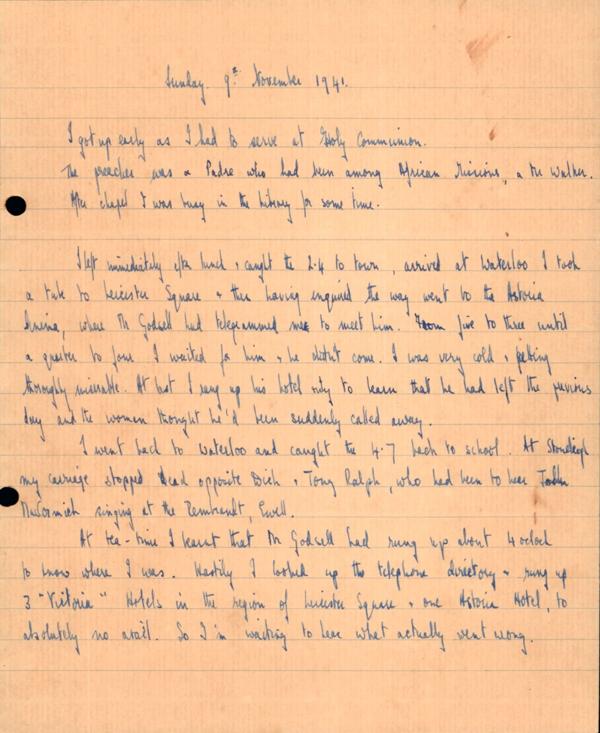 Sunday 9th November 1941.
I got up early as I had to serve at Holy Communion.
The preacher was a Padre who had been among African Missions, a Mr Walker.
After chapel I was busy in the library for some time.
I left immediately after lunch & caught the 2.4 to town, arrived at Waterloo I took
a tube to Leicester Square & then having enquired the way went to the Astoria
Cinema, where Mr Godsell had telegrammed me to meet him. From five to three until
a quarter to four I waited for him & he didn't come. I was very cold &
thoroughly miserable. At last I rang up his hotel only to learn that he had left the previous
day and the woman thought he'd been suddenly called away.
I went back to Waterloo and caught the 4.7 back to school. At Stoneleigh
my carriage stopped dead opposite Dick & Tony Ralph, who had been to hear John
McCormick singing at the Rembrandt, Ewell.
At tea-time I learnt that Mr Godsell had rung up about 4 oclock
to know where I was. Hastily I looked up the telephone directory & rung up
3 "Victoria" Hotels in the region of Leicester Square & one Astoria Hotel, to
absolutely no avail. So I'm waiting to hear what actually went wrong.